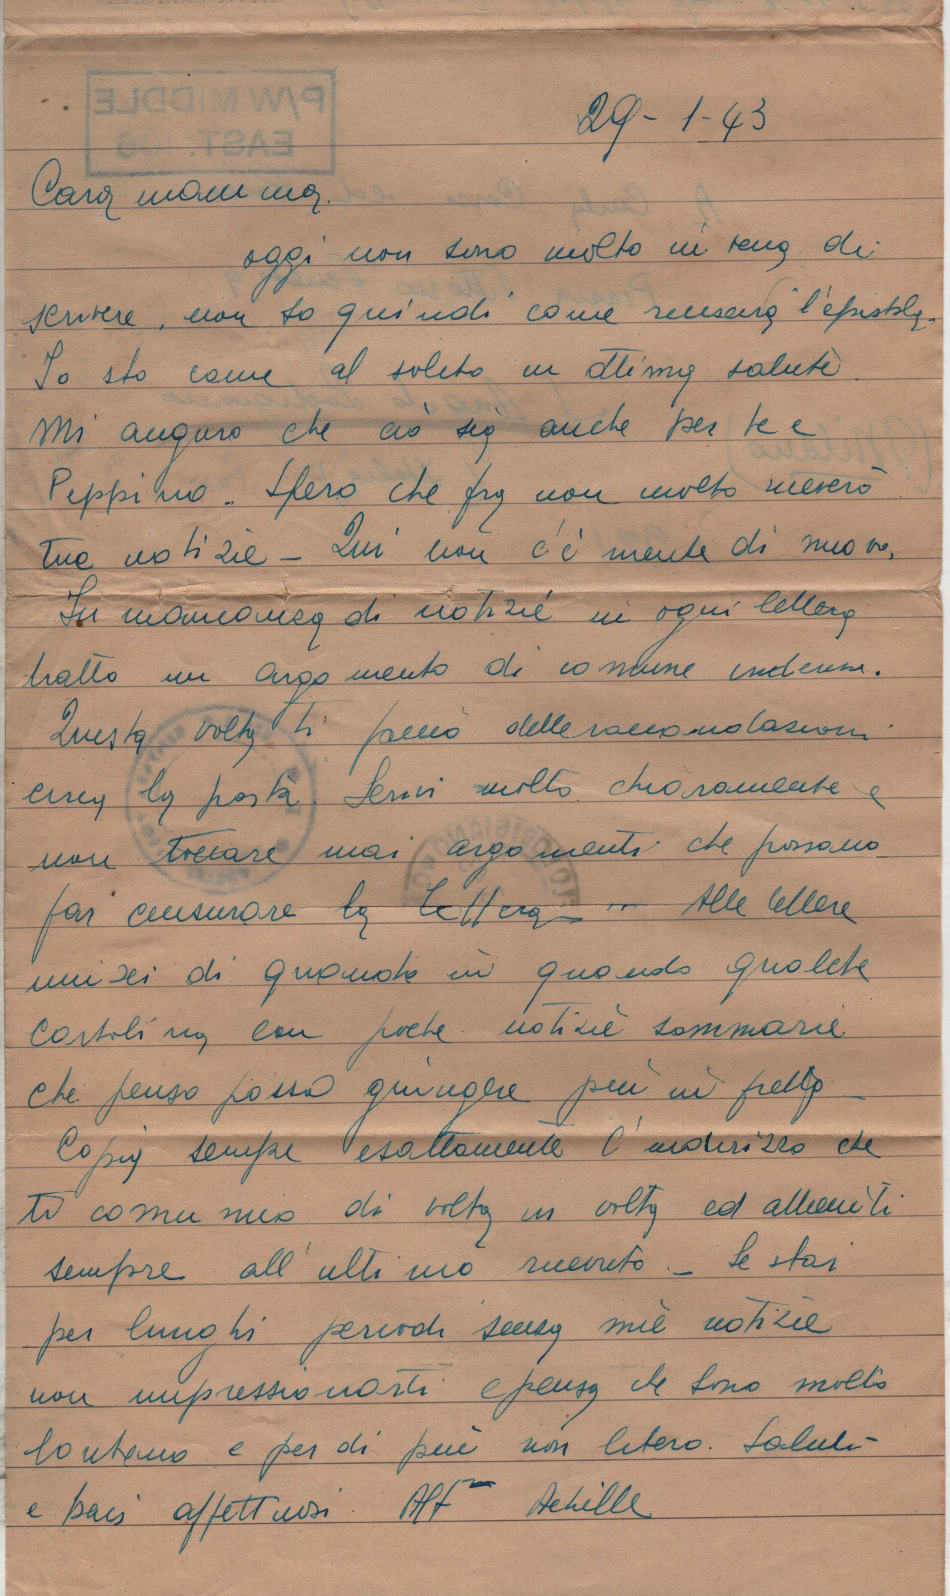 P/W MIDDLE
EAST. 106
29-1-43
Cara mamma.
oggi non sono molto in vena di
scrivere, non so quindi come riuscirà l'epistola.
Io sto come al solito in ottima salute.
Mi auguro che ciò sia anche per te e
Peppino. Spero che fra non molto riceverò
tue notizie - Qui non c'è niente di nuovo,
In mancanza di notizie in ogni lettera
tratto un argomento di comune interesse.
Questa volta ti faccio delle raccomandazioni
circa la posta. Scrivi molto chiaramente e
non toccare mai argomenti che possano
far censurare la lettera - Alle lettere
unisci di quando in quando qualche
cartolina con poche notizie sommarie
che penso possa giungere più in fretta -
Copia sempre esattamente l'indirizzo che
ti comunico di volta in volta ed attieniti
sempre all'ultimo ricevuto. - Se stai
per lunghi periodi senza mie notizie
non impressionarti e pensa che sono molto
lontano e per di più non libero. Saluti
e baci affettuosi Aff Achille